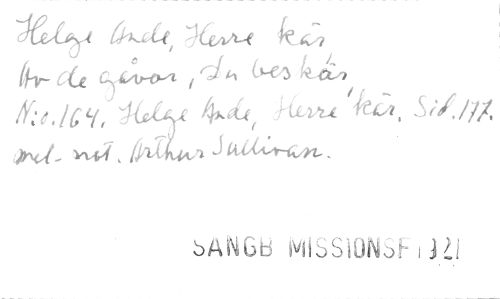 Helge Ande, Herre kär,
Av de gåvor, Du beskär,
N:o. 164. Helge Ande, Herre kär. Sid. 177.
mel-not. Arthur Sullivan.
SANGB MISSIONSF 1921